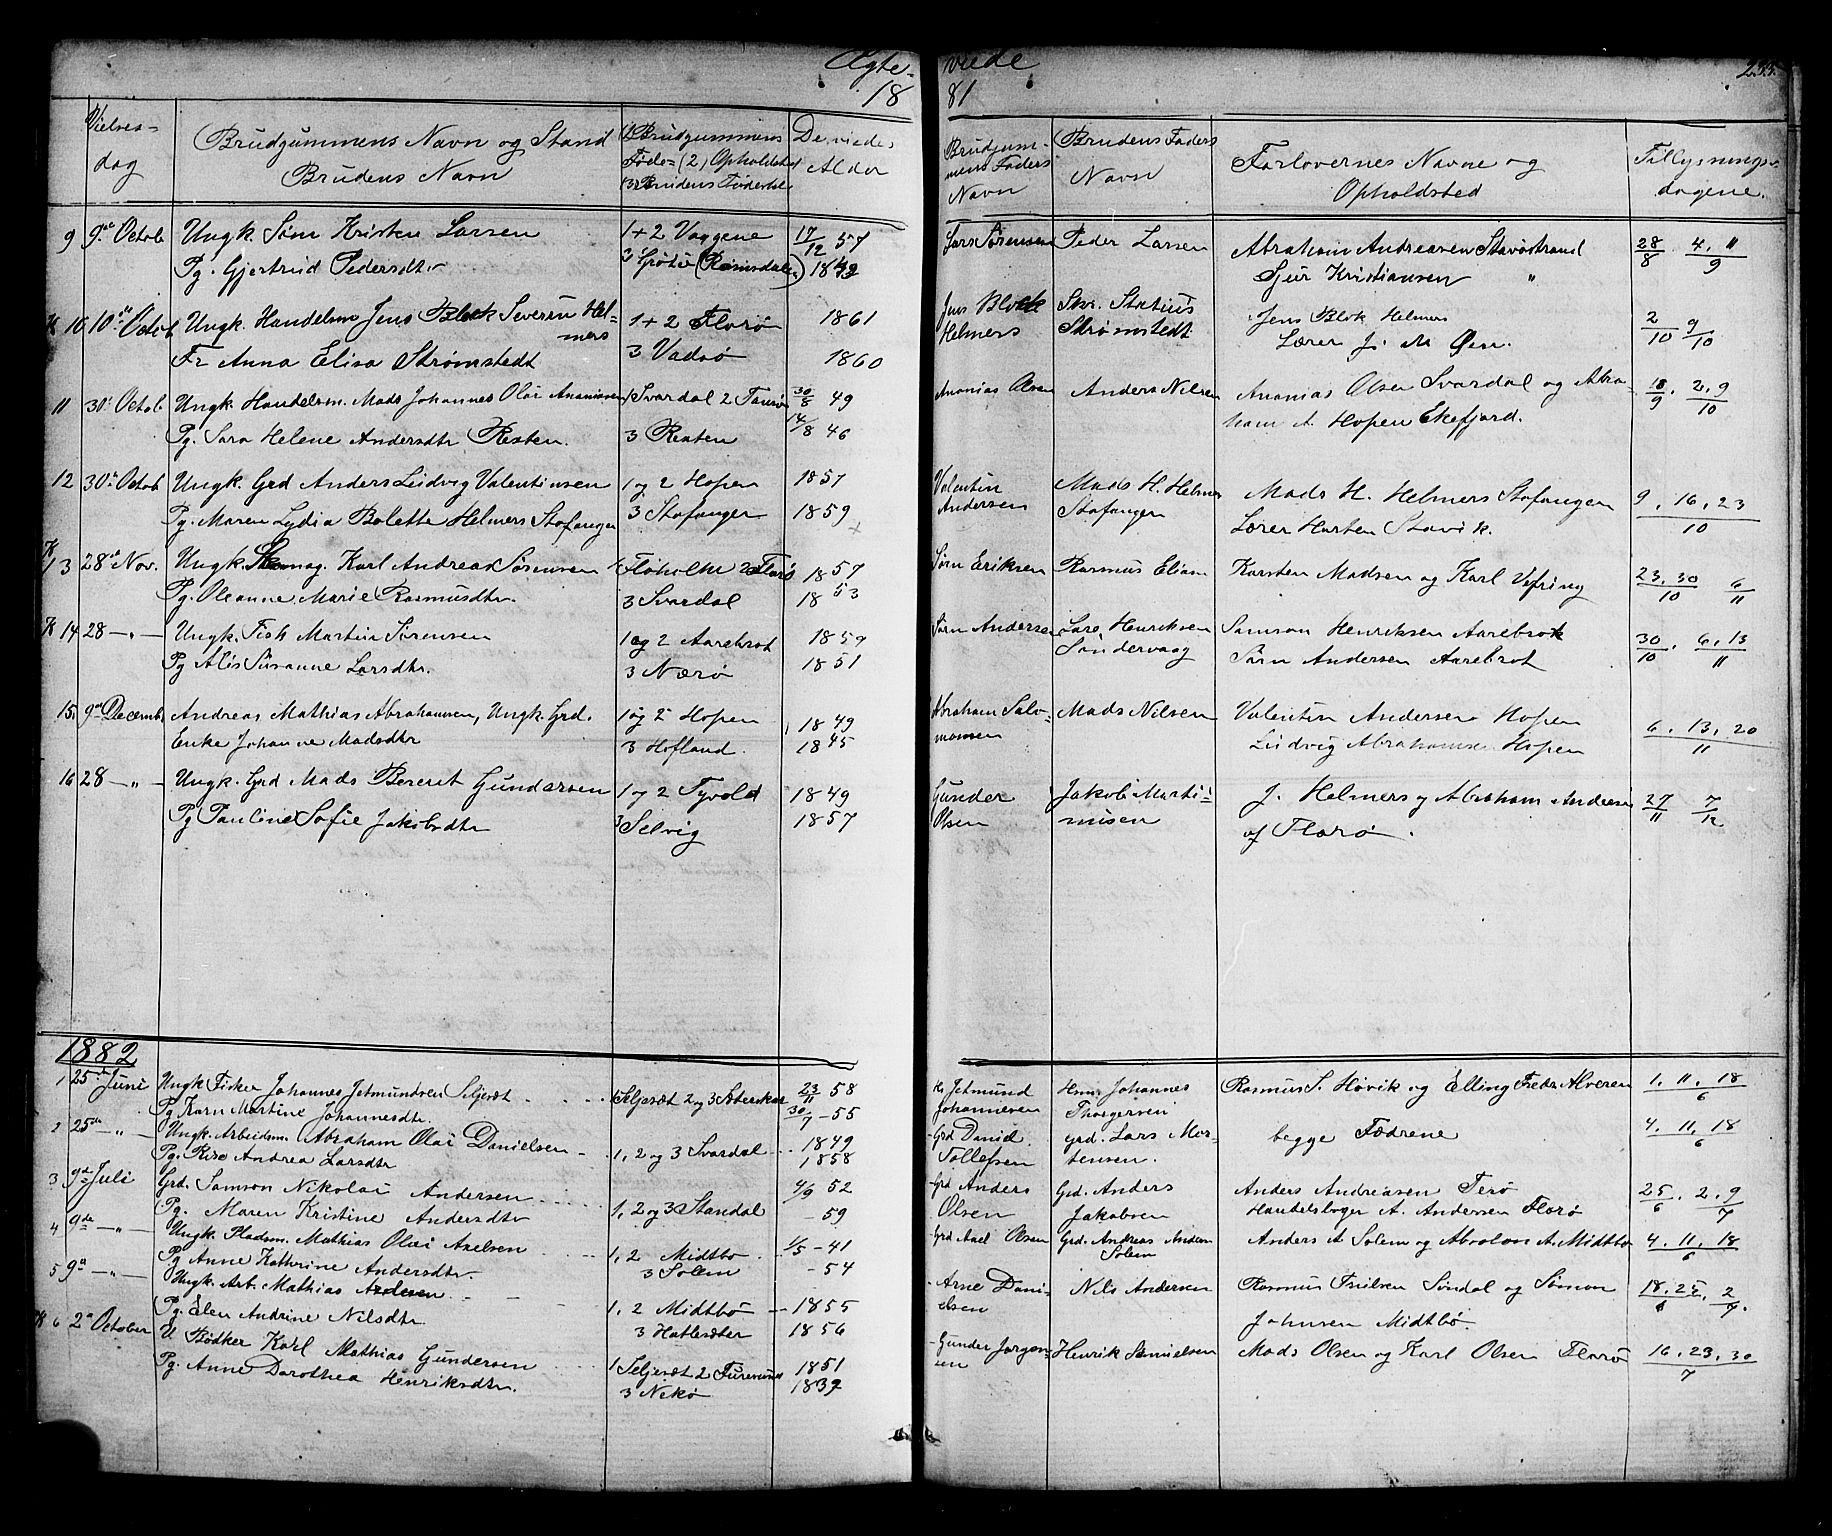 Ægte- viede 233.
18 81
Vielses-
dag
Brudgummens Navn og Stand
Brudens Navn
(1) Brudgummens
Føde= (2) Opholdsted
(3) Brudens Fødested
De viedes
Alder
Brudgum-
mens Faders
Navn
Brudens Faders
Navn
Forlovernes Navne og
Opholdsted
Tillysnings-
dagene.
9 9de Octob Ungk. Søren Kristen Larsen 1+2 Vaggene 17/12 57 Lars Sørensen Peder Larsen Abraham Andreasen Stavøstrand 28/8 . 4, 11/9
Pg. Gjertrud Pedersdtr 3 (Romsdalen) 1849 Sjur Kristiansen "
K 10 10de Octob Ungk. Handelsm Jens Blok Severin Hel= 1+2 Florø 1861 Jens Blok Skr. Statius Jens Blok Helmers 2/10 9/10
mers Helmers Strømstedt Lærer J. M. Øen.
Fr Anna Elisa Strømstedt 3 Vadsø 1860
11 30te Octob Ungk. Handelsm. Mads Johannes Olai Ananiasen 1 Svardal 2 Tansø 30/8 49 Ananias Olsen Anders Nilsen Ananias Olsen Svardal og Abra- 18/9 . 2, 9/10
Pg. Sara Helene Andersdtr Resten. 3 Resten 14/8 46 ham A. Hopen Ekefjord.
12 30te Octob Ungk. Grd Anders Ludvig Valentinsen 1 og 2 Hopen 1857 Valentin Mads H. Helmers Mads H. Helmers Stofangen 9, 16, 23/10
Pg. Maren Lydia Bolette Helmers Stofangen 3 Stofangen 1859 Andersen Stofangen Lærer Harten Stavik.
K 13 28de Nov. Ungk. Karl Andreas Sørensen 1 Floholm 2 Florø 1857 Sørn Eriksen Rasmus Eliasen Karsten Madsen og Karl Vefring 23, 30/10 6/11
Pg. Oleanne Marie Rasmusdtr. 3 Svardal 1853
K 14 28 — " — Ungk. Fisk Martin Sørensen 1 og 2 Aarebrot 1859 Sørn Andersen Lars Henriksen Samson Henriksen Aarebrot 30/10 . 6, 13/11
Pg Alis Susanne Larsdtr. 3 Nærø 1851 Søndervaag Sørn Andersen Aarebrot
15 9de Decemb Andreas Mathias Abrahamsen, Ungk. Grd. 1 og 2 Hopen 1849 Abraham Salo- Mads Nilsen Valentin Andersen Hopen 6, 13, 20/11
Enke Johanne Madsdtr 3 Hofland. 1845 monsen Ludvig Abrahamsen Hopen
16 28 — " — Ungk. Grd Mads Bererit Gundersen 1 og 2 Tyvold 1849 Gunder Jakob Marti- J. Helmers og Abraham Andresen 27/11 7/12
Pg Pauline Sofie Jakobsdtr 3 Selvig 1857 Olsen nusen af Florø.
1882
1 25de Juni Ungk Fisker Johannes Jetmundsen Seljesæt 1 Seljesæt 2 og 3 23/11 58 Jetmund Johannes Rasmus S. Høvik og Elling Fredr. Alversen 1, 11, 18/6
Pg Karn Martine Johannesdtr. 30/7 - 55 Johannesen
2 25de — " — Ungk. Arbeidsm. Abraham Olai Danielsen 1, 2 og 3 Svardal 1849 Grd Daniel Grd. Lars Mor- begge Fædrene 4, 11, 18/6
Pg. Andrea Larsdtr 1858 Tollefsen tensen.
3 9de Juli Grd. Samson Nikolai Andersen 1, 2 og 3 Standal 4/9 52 Grd Anders Grd. Anders Anders Andreasen Terø 25/6 . 2, 9/7
Pg. Maren Kristine Andersdtr - 59 Olsen Jakobsen Handelsbager A. Andersen Florø
4 9de — " — Ungk. Pladsm. Mathias Olai Axelsen 1, 2 Midtbø 1/5 - 41 Grd Axel Olsen Grd. Andreas Anders Anders A Solem og Abraham A. Midtbø 4, 11, 18/6
Pg Anne Kathrine Andersdtr. 3 Solem - 54 Solem
5 9de — " — Ungk. Arb. Mathias Andersen 1, 2 Midtbø 1855 Arne Dani- Nils Andersen Rasmus Søndal og Simon 18, 25/6, 2/7
Pg. Elen Andrine Nilsdtr. 3 Hatlesæter 1856 elsen Johnsen Midtbø.
K 6 2de October U Bødker Karl Mathias Gundersen 1 Seljesæt 2 Furesund 1851 Gunder Jørgen- Henrik Samuelsen Mads Olsen og Karl Olsen Florø 16, 23, 30/7
Pg. Anne Dorothea Henriksdtr. 3 Nekø 1839 sen